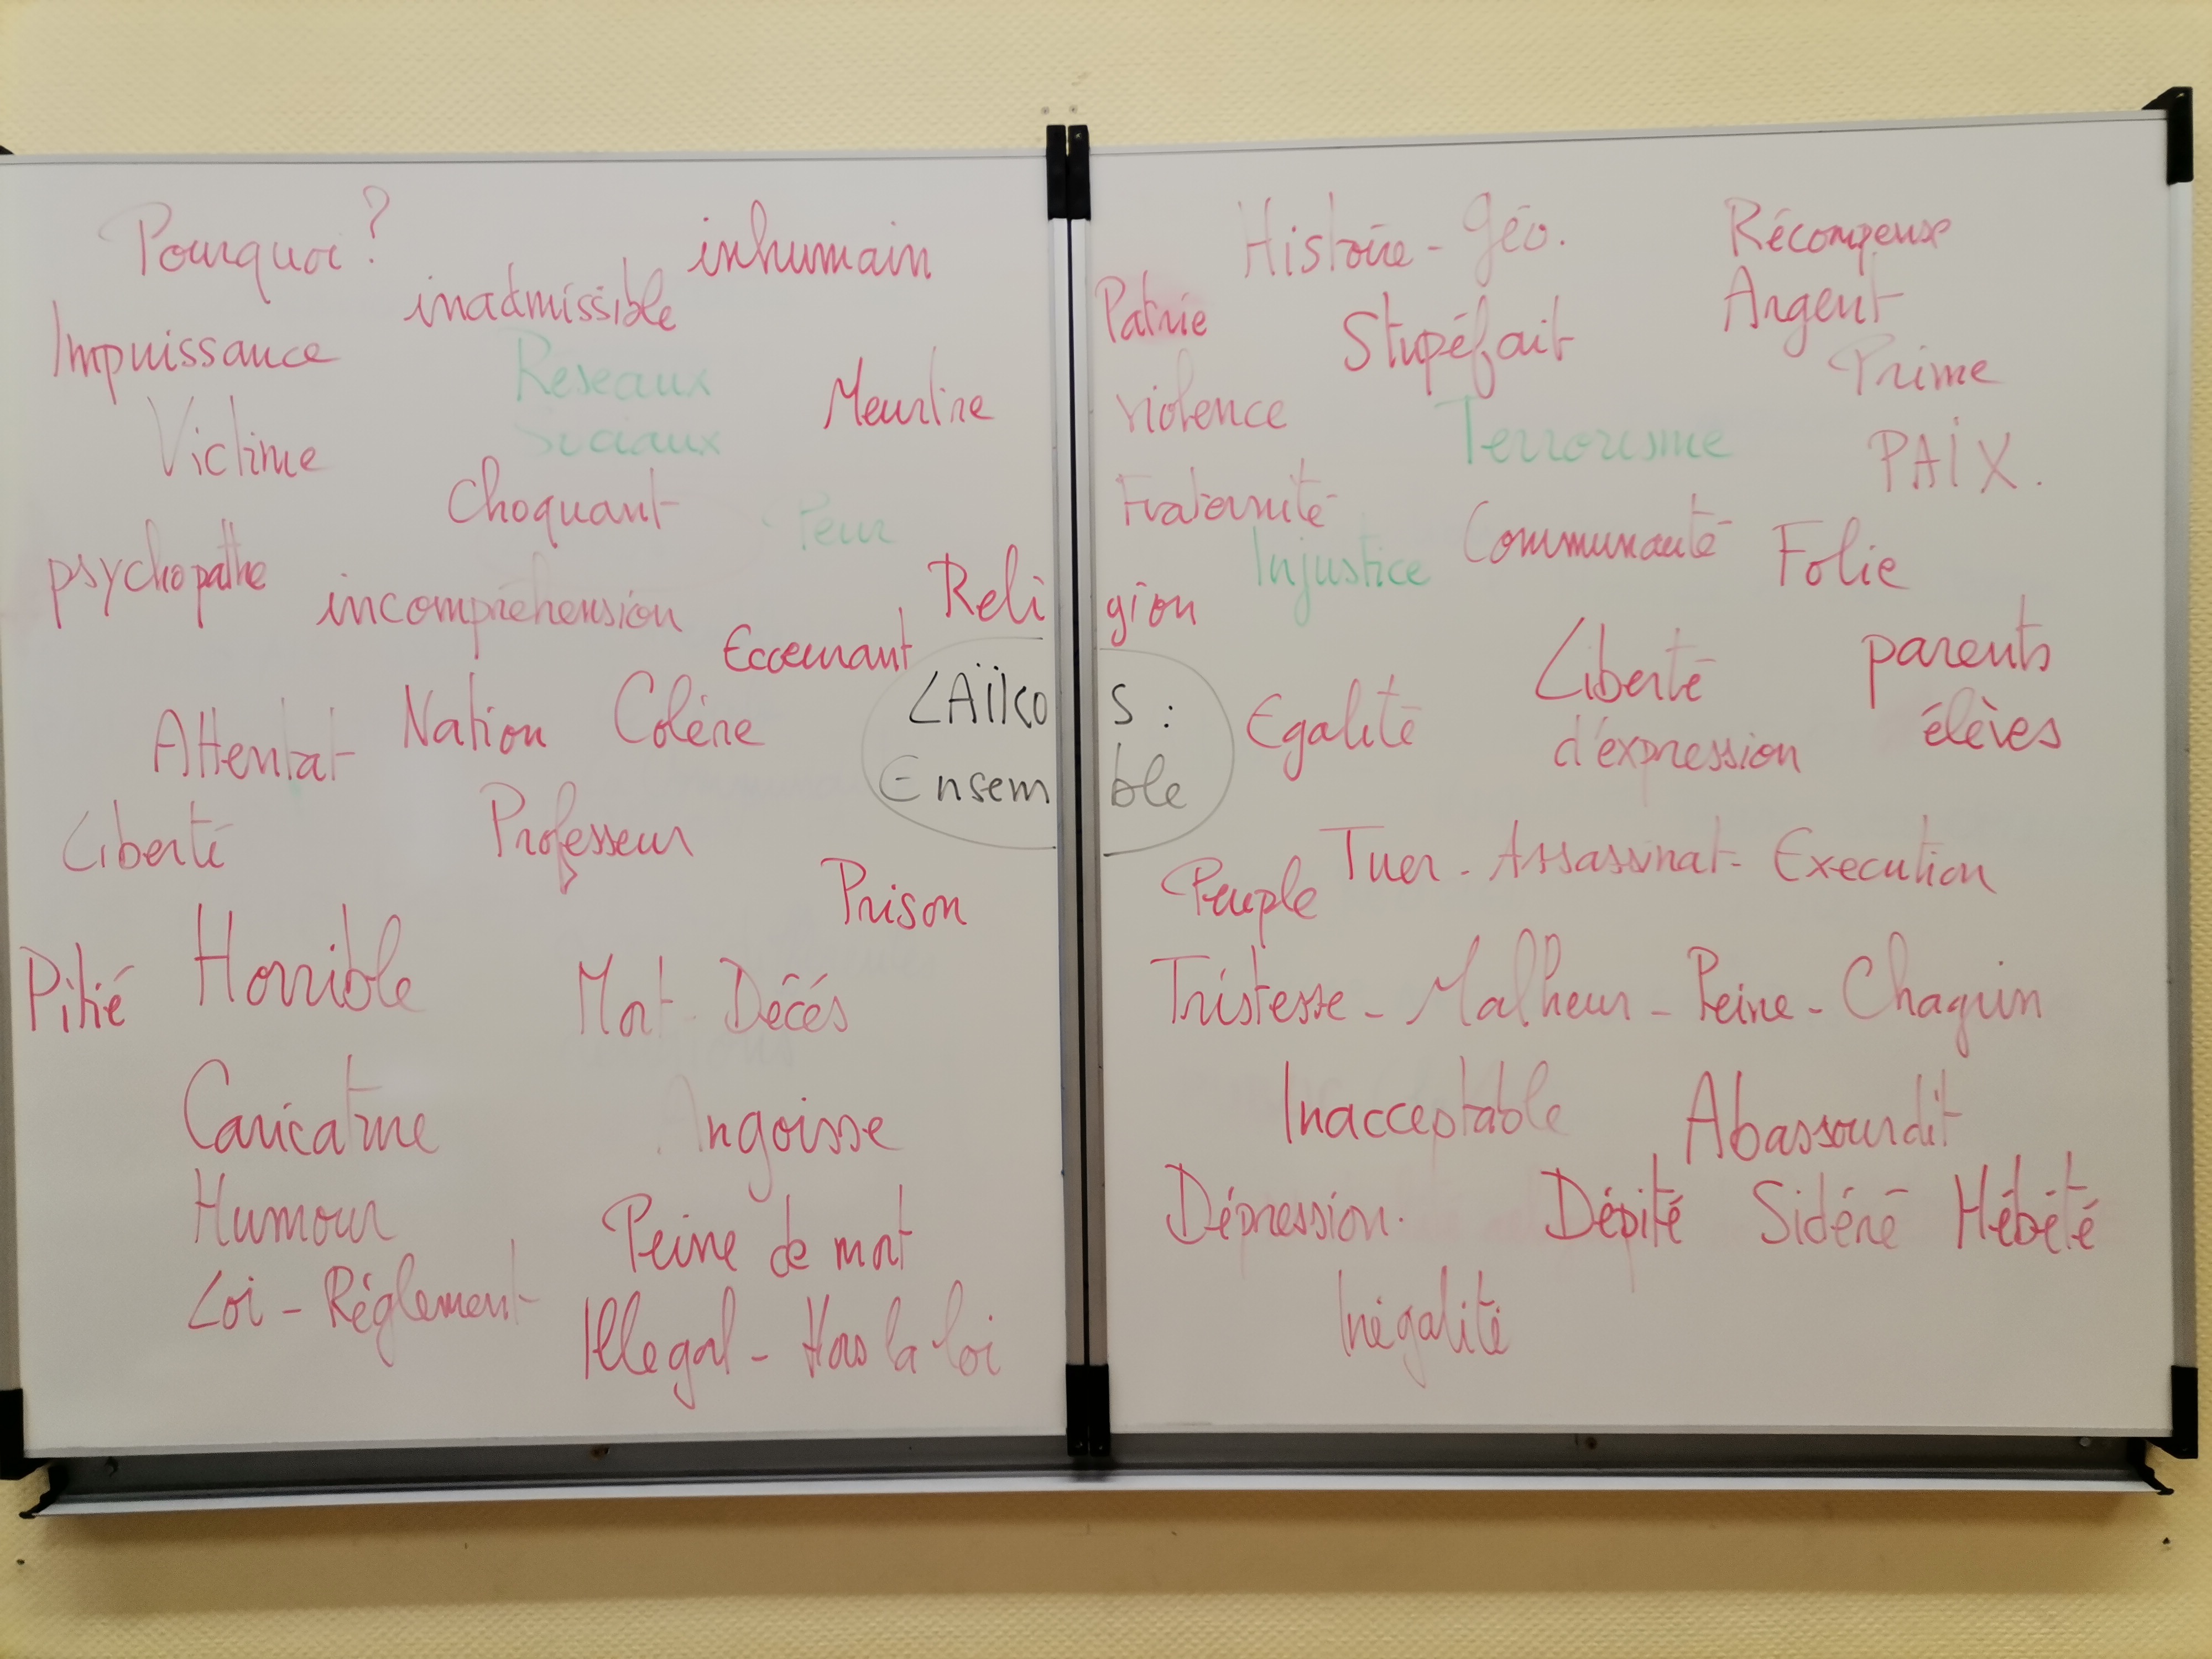 Pourquoi ?
inhumain
inadmissible
Impuissance
Réseaux
Sociaux
Meurtre
Victime
Choquant
Peur
psychopathe
incompréhension
Religion
Eccœurant
LAÏKOS :
Ensemble
Attentat
Nation
Colère
Liberté
Professeur
Prison
Pitié
Horrible
Mort - Décés
Caricature
Angoisse
Humour
Peine de mort
Loi - Réglement
Illegal - Hors la loi
Histoire - Géo.
Récompense
Patrie
Stupéfait
Argent
Prime
violence
Terrorisme
PAIX.
Fraternité
Injustice
Communauté
Folie
Egalité
Liberté
d'expression
parents
élèves
Peuple
Tuer - Assassinat - Execution
Tristesse - Malheur - Peine - Chagrin
Inacceptable
Abassourdit
Dépression.
Dépité
Sidéré
Hébété
Inégalité